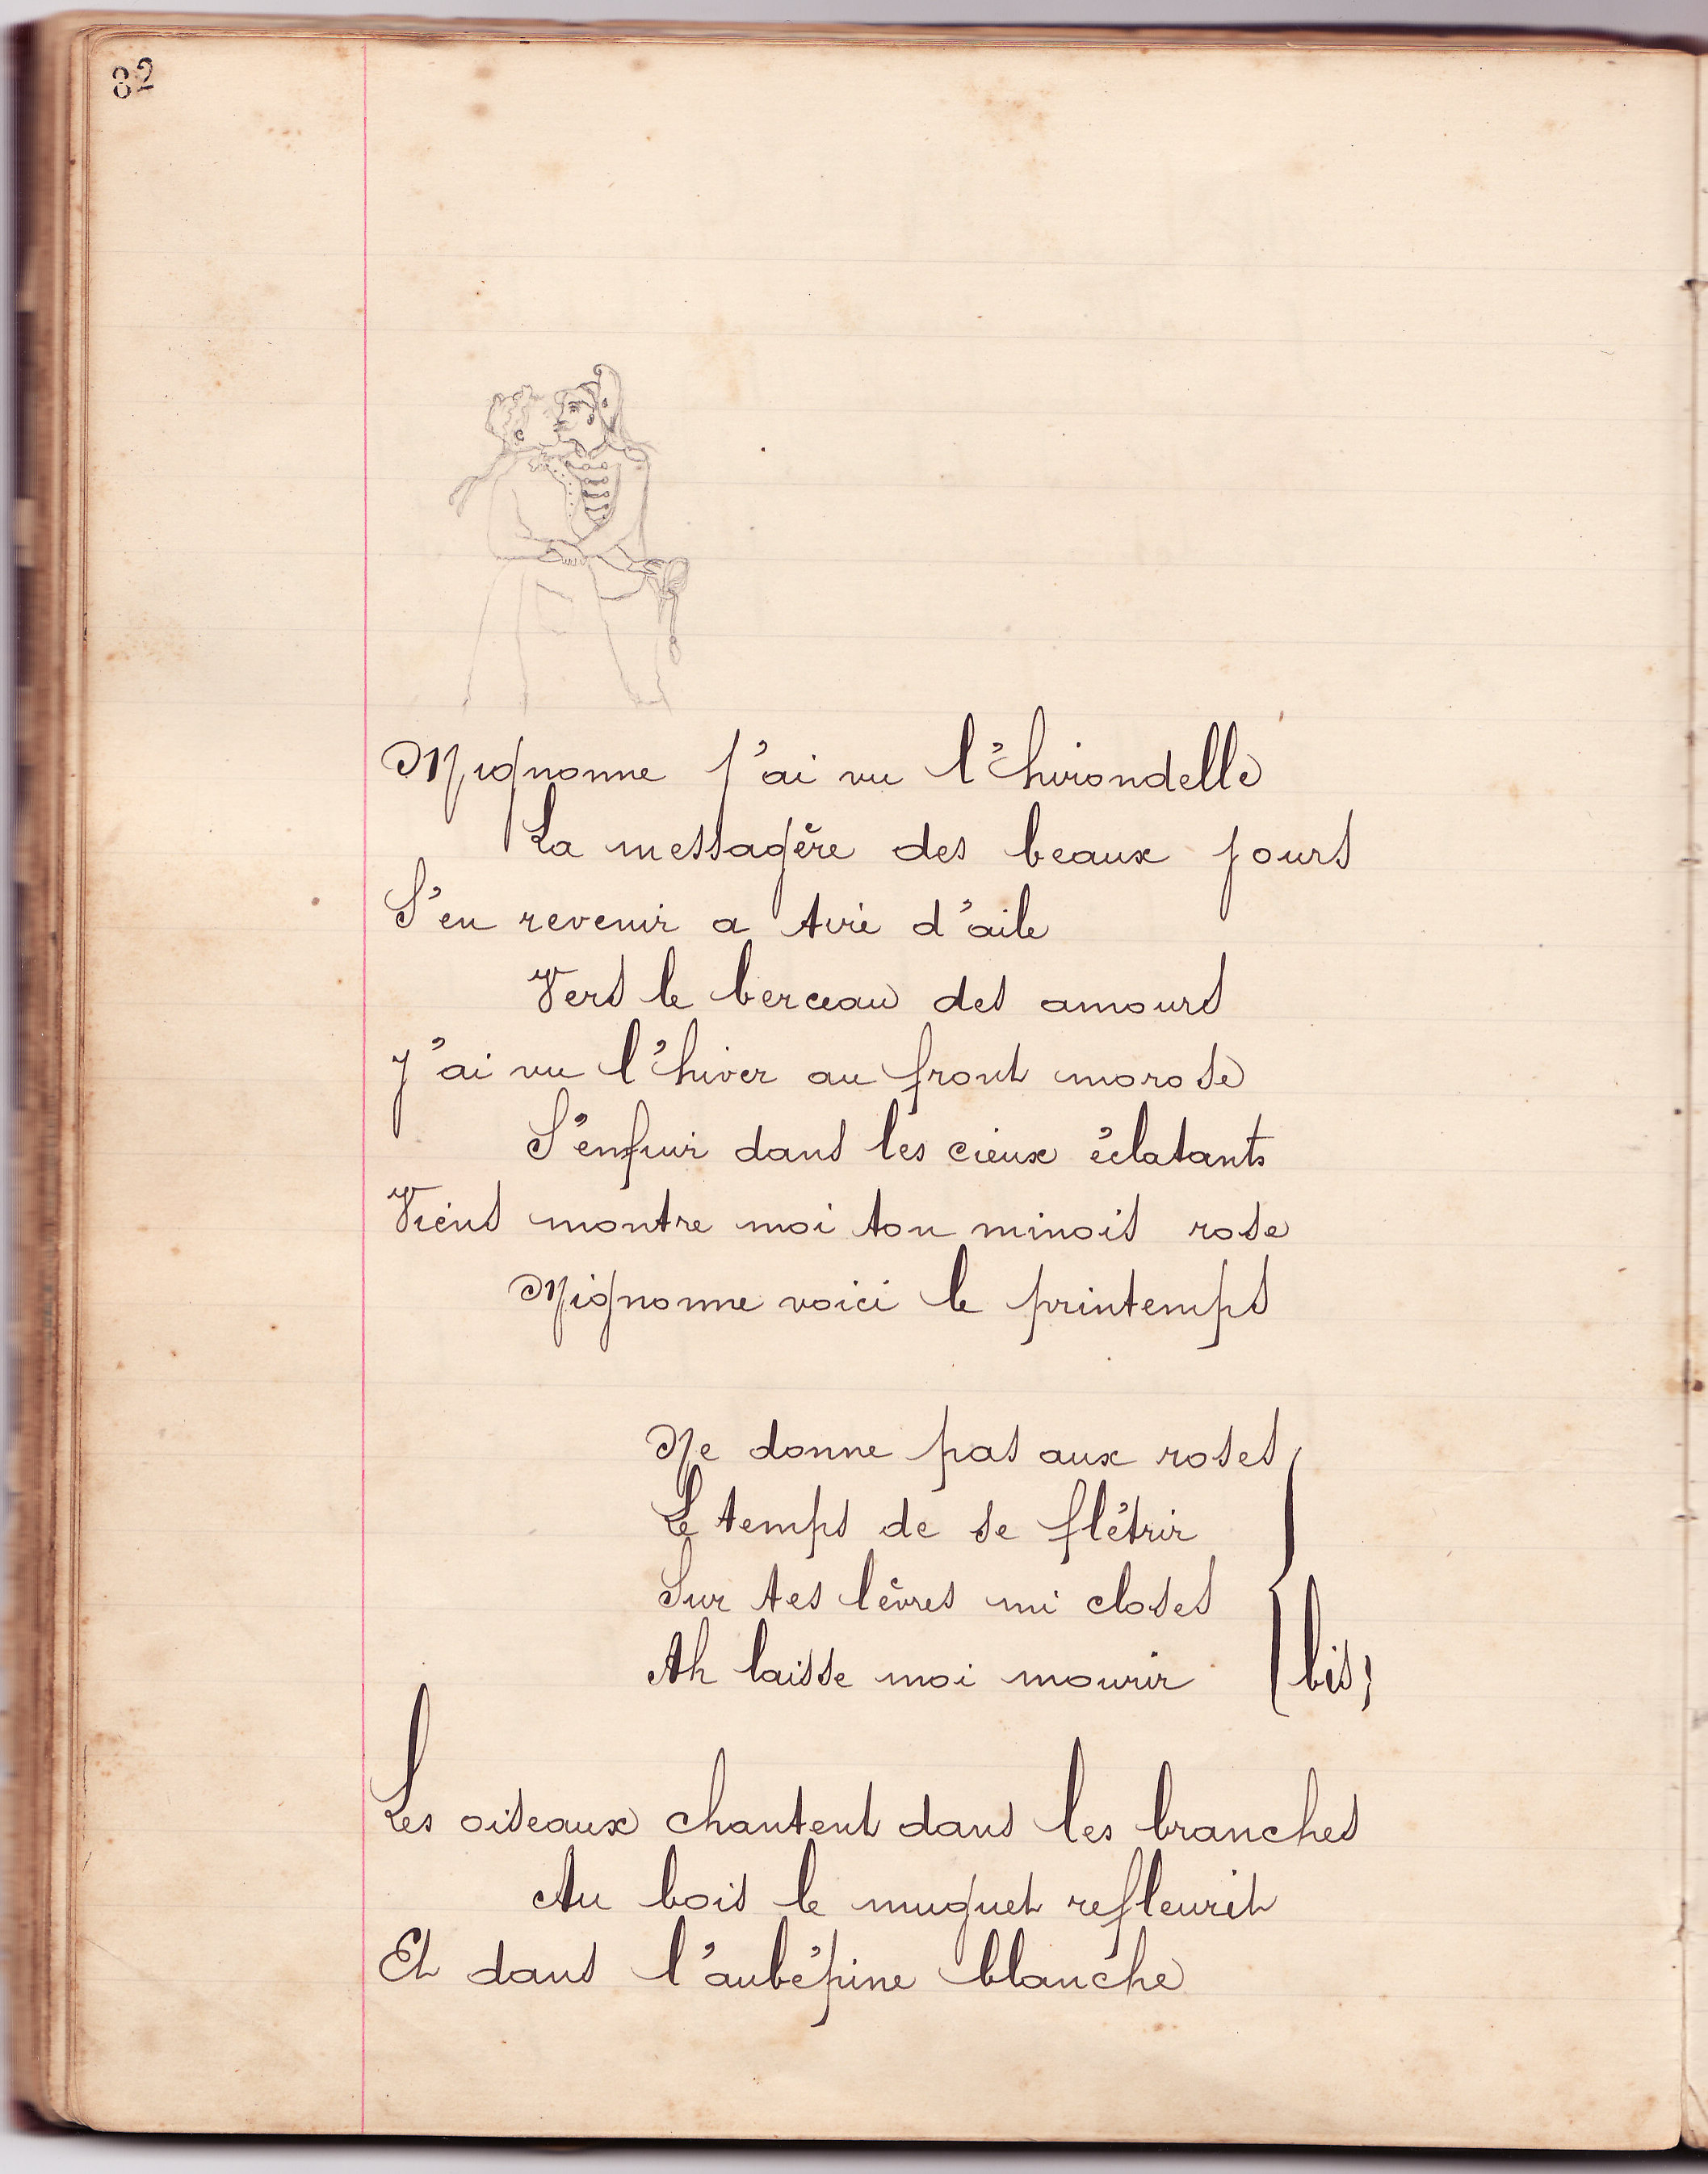 82
Mignonne j'ai vu l'hirondelle
La messagère des beaux jours
S'en revenir a tire d'aile
Vers le berceau des amours
J'ai vu l'hiver au front morose
S'enfuir dans les cieux éclatants
Viens montre moi ton minois rose
Mignonne voici le printemps
Ne donne pas aux roses
Le temps de se flétrir
Sur tes lèvres mi closes
Ah laisse moi mourir (bis)
Les oiseaux chantent dans les branches
Au bois le muguet refleurit
Et dans l'aubépine blanche